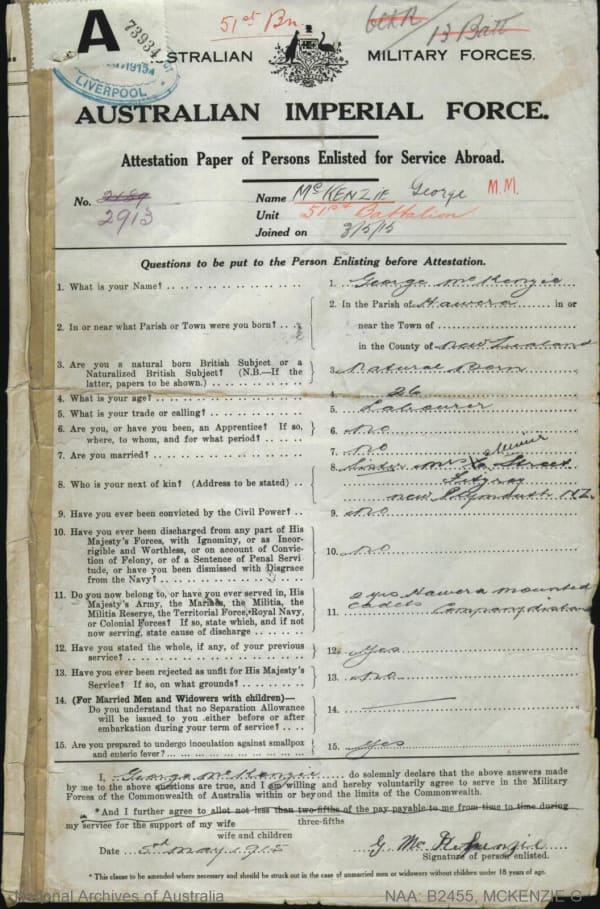 51st Bn
13 Batt
A
73934
LIVERPOOL
STRALIAN MILITARY FORCES.
AUSTRALIAN IMPERIAL FORCE.
Attestation Paper of Persons Enlisted for Service Abroad.
No. 2189
2913
Name McKENZIE George M.M.
Unit 51st Battalion
Joined on 3/5/15
Questions to be put to the Person Enlisting before Attestation.
1. What is your Name? 1. George McKenzie
2. In or near what Parish or Town were you born? 2. In the Parish of Hawera in or
near the Town of
in the County of New Zealand
3. Are you a natural born British Subject or a
Naturalized British Subject? (N.B.—If the
latter, papers to be shown.) 3. Natural Born
4. What is your age? 4. 26
5. What is your trade or calling? 5. Labourer
6. Are you, or have you been, an Apprentice? If so,
where, to whom, and for what period? 6. No
7. Are you married? 7. No
8. Who is your next of kin? (Address to be stated) 8. Sister Mrs Street
Fitzroy
New Plymouth N.Z.
9. Have you ever been convicted by the Civil Power? 9. No
10. Have you ever been discharged from any part of His
Majesty's Forces, with Ignominy, or as Incor-
rigible and Worthless, or on account of Convic-
tion of Felony, or of a Sentence of Penal Servi-
tude, or have you been dismissed with Disgrace
from the Navy? 10. No
11. Do you now belong to, or have you ever served in, His
Majesty's Army, the Marines, the Militia, the
Militia Reserve, the Territorial Force, Royal Navy,
or Colonial Forces? If so, state which, and if not
now serving, state cause of discharge 11. 2 yrs Hawera Mounted
Cadets Company
12. Have you stated the whole, if any, of your previous
service? 12. Yes
13. Have you ever been rejected as unfit for His Majesty's
Service? If so, on what grounds? 13. No
14. (For Married Men and Widowers with children)—
Do you understand that no Separation Allowance
will be issued to you either before or after
embarkation during your term of service? 14.
15. Are you prepared to undergo inoculation against smallpox
and enteric fever? 15. Yes
I, George McKenzie do solemnly declare that the above answers made
by me to the above questions are true, and I am willing and hereby voluntarily agree to serve in the Military
Forces of the Commonwealth of Australia within or beyond the limits of the Commonwealth.
*And I further agree to allot not less than two-fifths of the pay payable to me from time to time during
three-fifths
my service for the support of my wife
wife and children
Date 3rd May 1915 G McKenzie
Signature of person enlisted.
* This clause to be amended where necessary and should be struck out in the case of unmarried men or widowers without children under 18 years of age.
National Archives of Australia NAA: B2455, MCKENZIE G